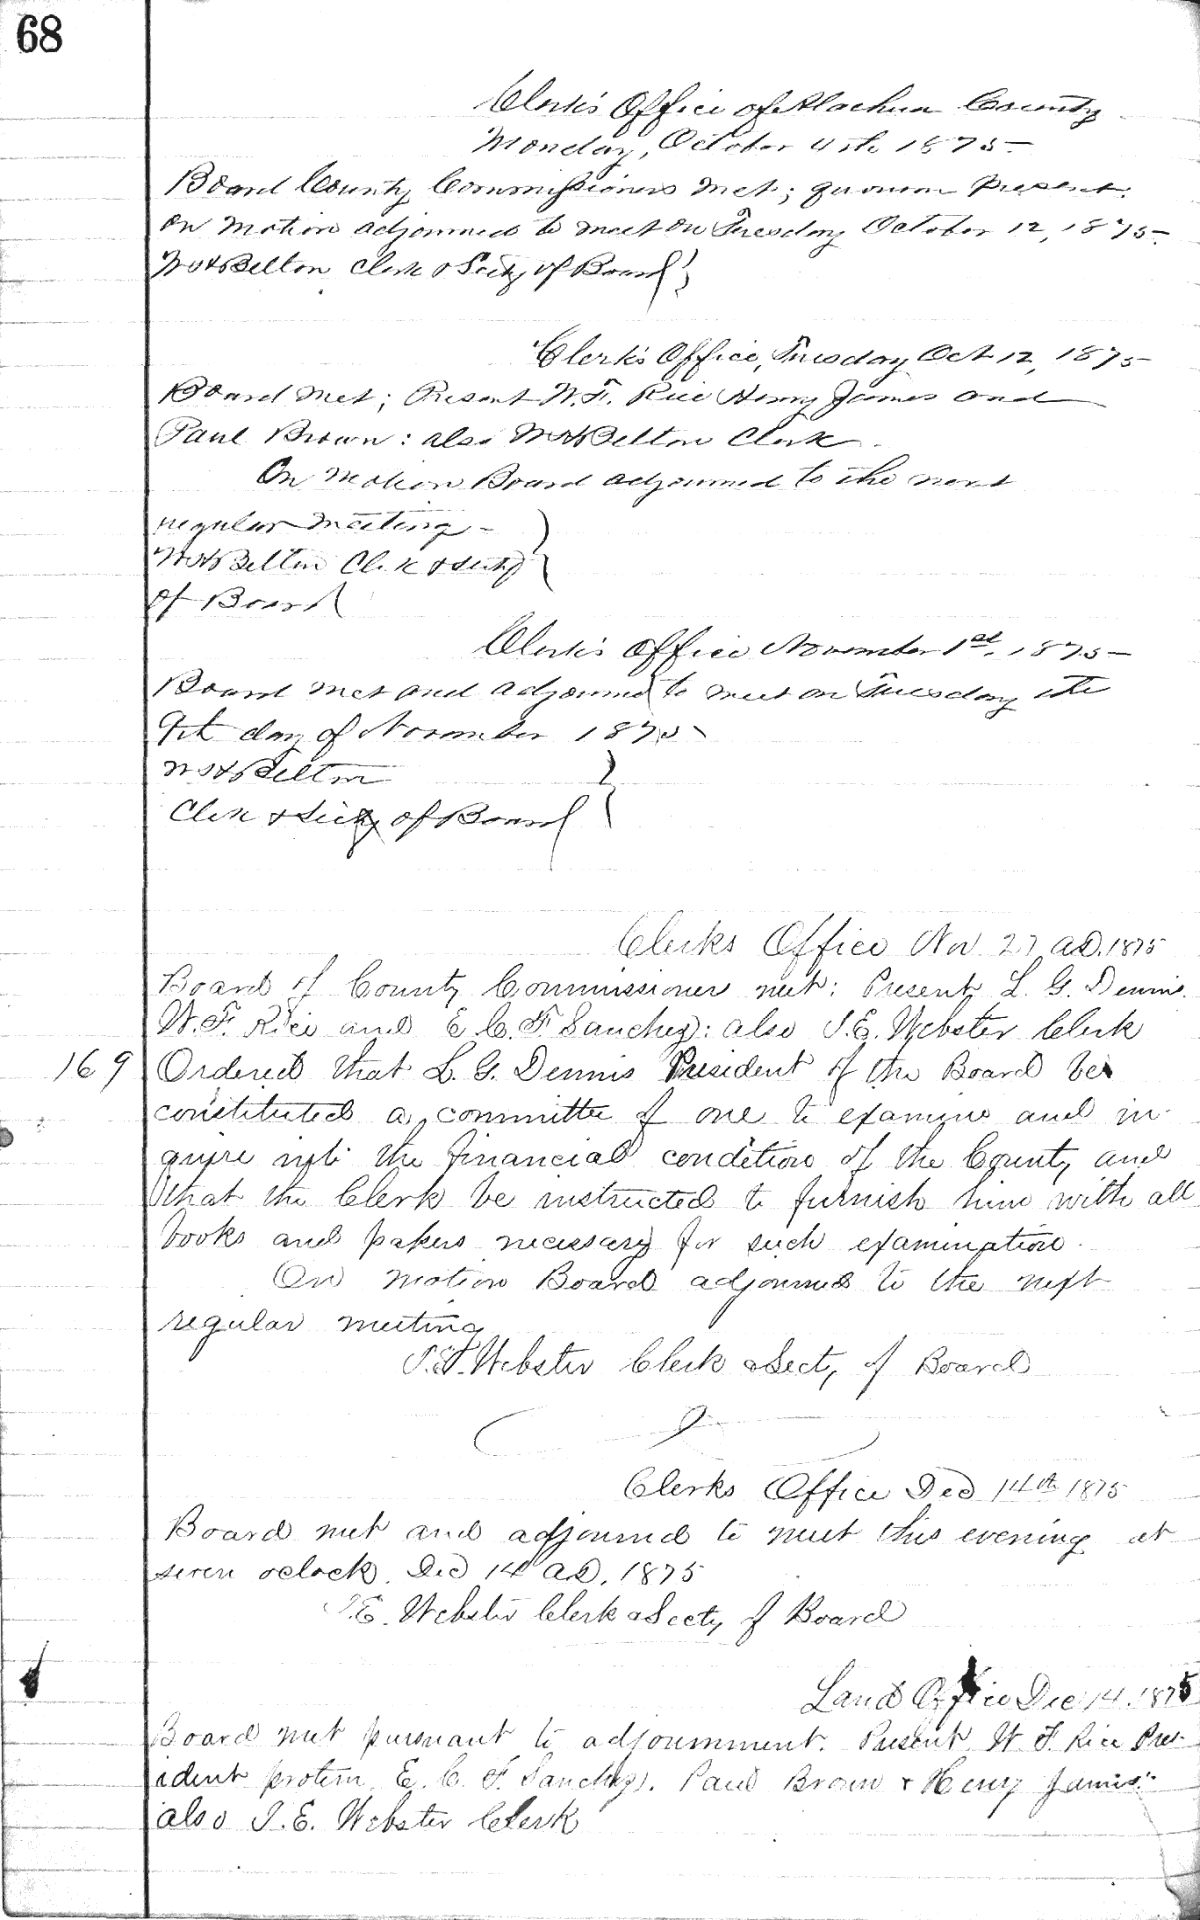 68
Clerk's Office of Alachua County
Monday, October 11th 1875-
Board County Commissioners met; quorum present.
on motion adjourned to meet on Tuesday October 12, 1875-
W H Belton Clerk & Secty of Board
Clerk's Office, Tuesday Oct 12, 1875-
Board met; Present W. F. Rice Henry James and
Paul Brown: also W H Belton Clerk.
On motion Board adjourned to the next
regular meeting -
W H Belton Clerk & Secty
of Board
Clerk's Office November 1st, 1875-
Board met and adjourned to meet on Tuesday the
9th day of November 1875
W H Belton
Clerk & Secty of Board
Clerks Office Nov 27 A.D. 1875
Board of County Commissioner met: Present L. G. Dennis
W. F. Rice and E. C. F. Sanchez: also I. E. Webster Clerk
169 Ordered that L. G. Dennis President of the Board be
constituted a committe of one to examine and in-
quire into the financial condition of the County and
that the Clerk be instructed to furnish him with all
books and papers necessary for such examination.
On motion Board adjourned to the next
regular meeting
I. E. Webster Clerk & Secty of Board
Clerks Office Dec 14th 1875
Board met and adjourned to meet this evening at
seven oclock. Dec 14 A.D. 1875
I. E. Webster Clerk & Secty of Board
Land Office Dec 14. 1875
Board met pursuant to adjournment. Present W. F. Rice Pres-
ident protem, E. C. F. Sanchez, Paul Brown & Henry James:
also I. E. Webster Clerk